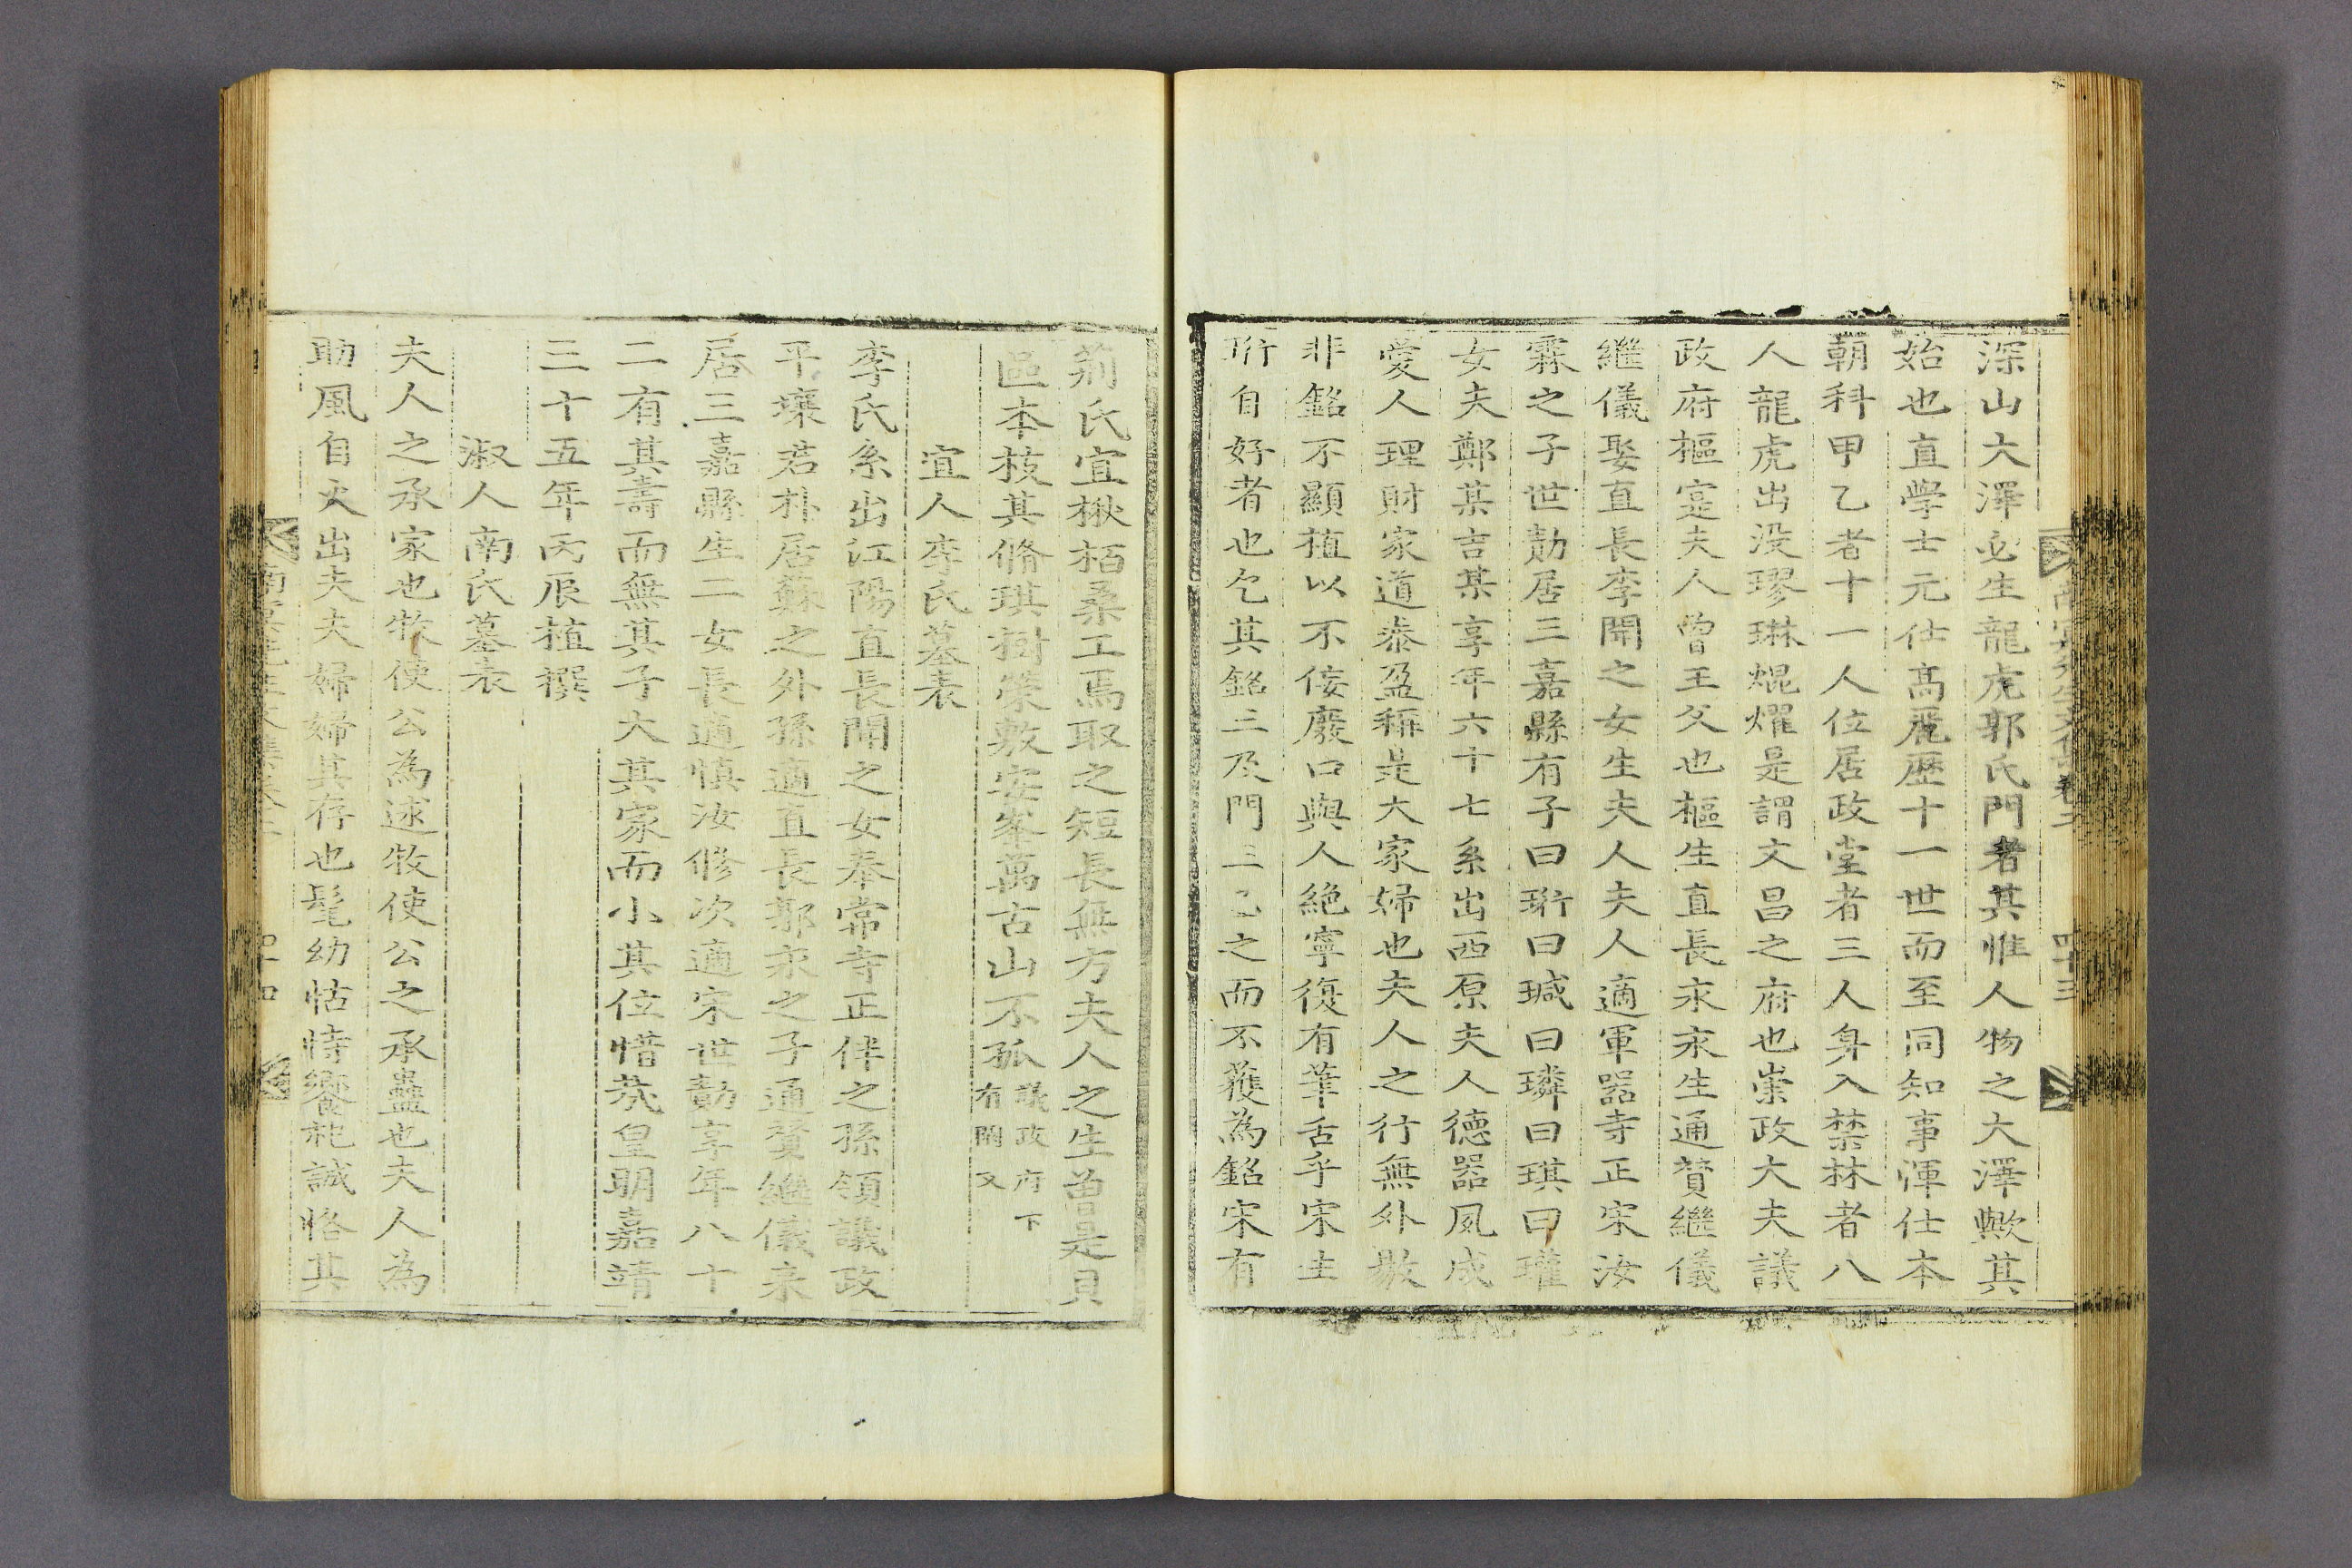 深山大澤必生龍虎郭氏門者其惟人物之大澤歟其
始也直學士元仕高麗歷十一世而至同知事渾仕本
朝科甲乙者十一人位居政堂者三人身入禁林者八
人龍虎出没璆琳焜燿是謂文昌之府也崇政大夫議
政府樞寔夫人曾王父也樞生直長永永生通贊繼儀
繼儀娶直長李開之女生夫人夫人適軍器寺正宋汝
霖之子世勣居三嘉縣有子曰珩曰瑊曰璘曰琪曰瓘
女夫鄭某吉某享年六十七系出西原夫人德器夙成
愛人理財家道泰盈稱是大家婦也夫人之行無外敭
非銘不顯植以不佞廢口與人絶寧復有筆舌乎宋生
珩自好者也乞其銘三及門三之而不獲為銘宋有
荊氏宜楸栢桑工焉取之短長無方夫人之生曾是貝
區本枝其脩琪樹榮敷安峯萬古山不孤議政府下有闕文
宜人李氏墓表
李氏系出江陽直長開之女奉常寺正伴之孫領議政
平壤君朴居蘇之外孫適直長郭永之子通贊繼儀來
居三嘉縣生二女長適愼汝修次適宋世勣享年八十
二有其壽而無其子大其家而小其位惜哉皇明嘉靖
三十五年丙辰植撰
淑人南氏墓表
夫人之承家也牧使公為逑牧使公之承蠱也夫人為
助風自火出夫夫婦婦其存也髦幼怙恃饗祀誠恪其